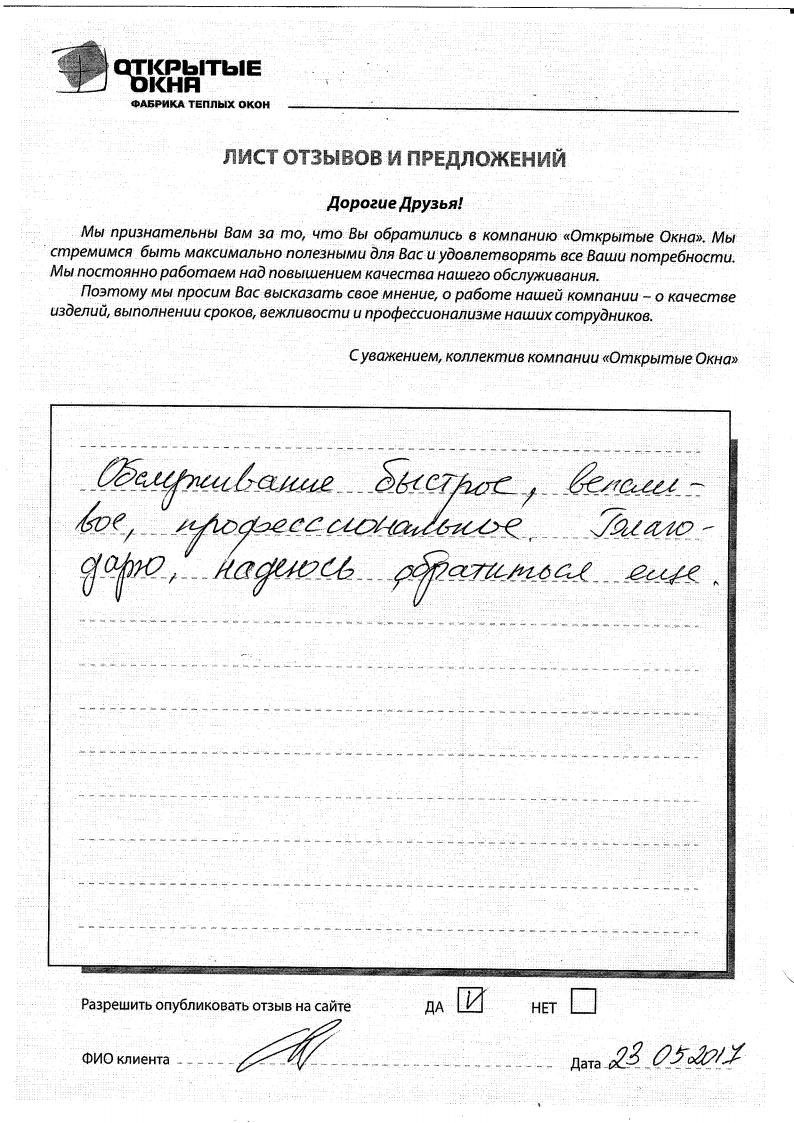 ОТКРЫТЫЕ
ОКНА
ФАБРИКА ТЕПЛЫХ ОКОН
ЛИСТ ОТЗЫВОВ И ПРЕДЛОЖЕНИЙ
Дорогие Друзья!
Мы признательны Вам за то, что Вы обратились в компанию «Открытые Окна». Мы
стремимся быть максимально полезными для Вас и удовлетворять все Ваши потребности.
Мы постоянно работаем над повышением качества нашего обслуживания.
Поэтому мы просим Вас высказать свое мнение, о работе нашей компании – о качестве
изделий, выполнении сроков, вежливости и профессионализме наших сотрудников.
С уважением, коллектив компании «Открытые Окна»
Обслуживание быстрое, вежли-
вое, профессиональное. Благо-
дарю, надеюсь обратиться еще.
Разрешить опубликовать отзыв на сайте ДА НЕТ
ФИО клиента Дата 23 05 2017